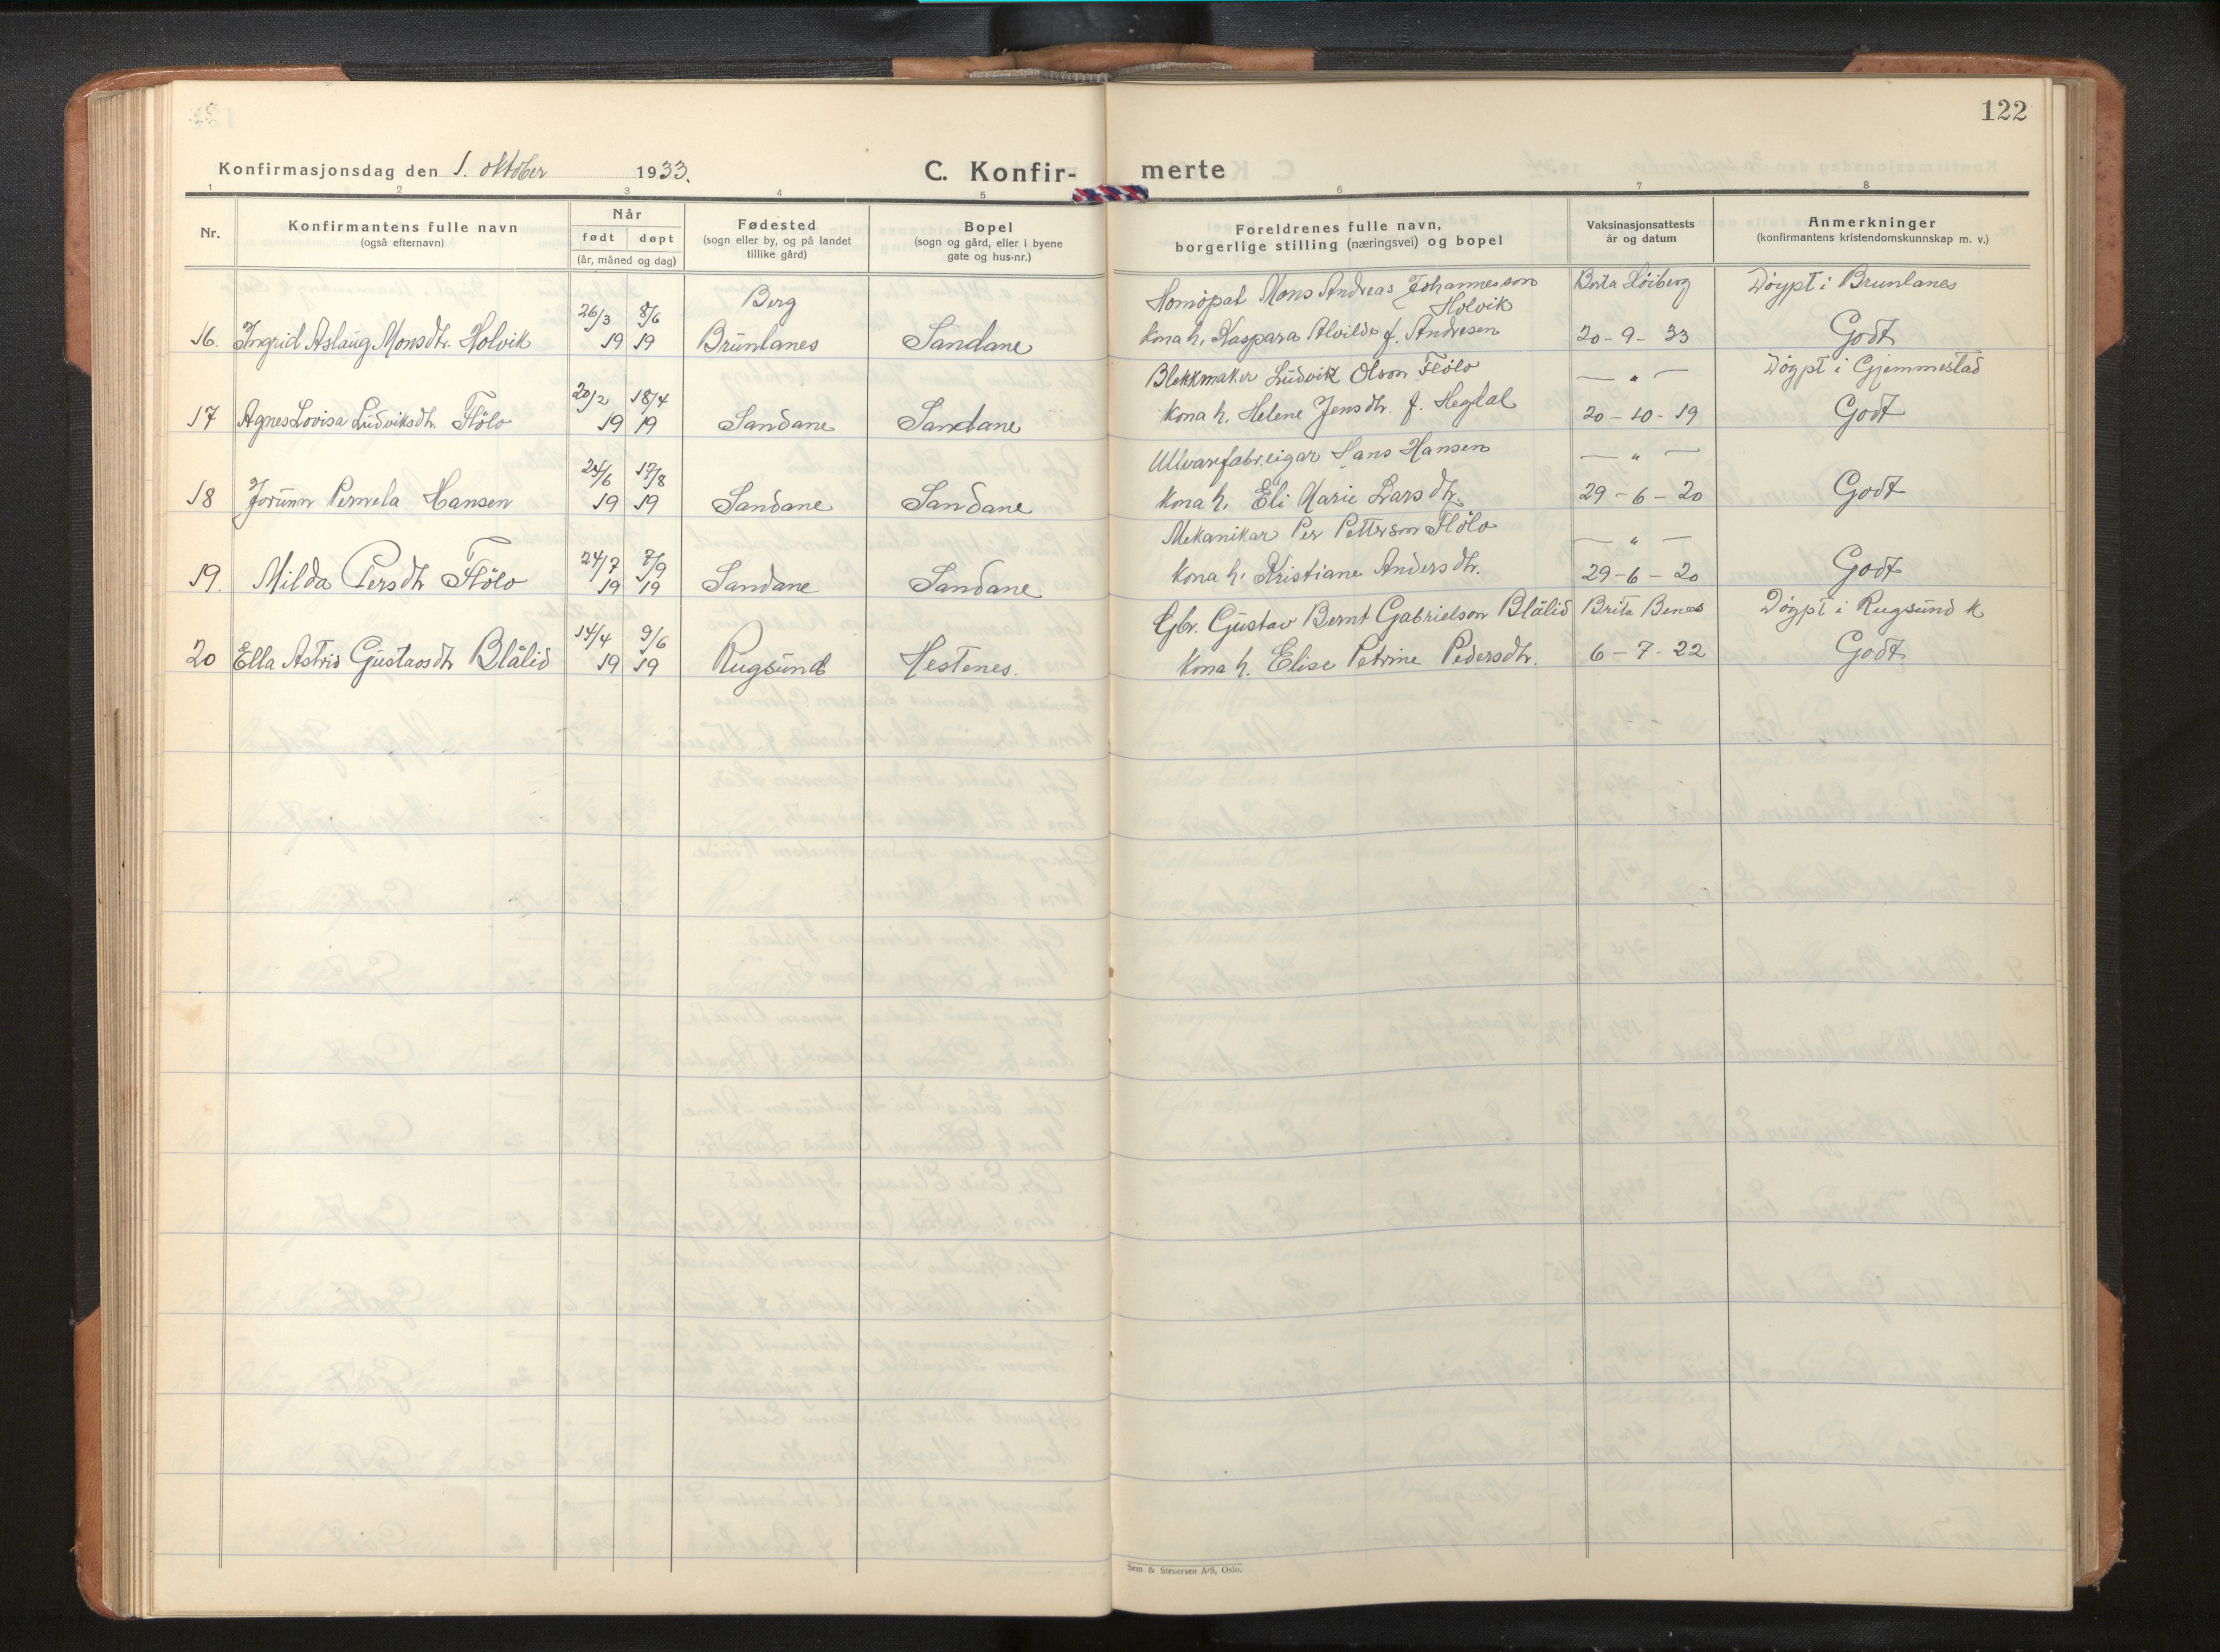 122
Konfirmasjonsdag den 1. oktober 1933.
C. Konfir-
merte
1 2 3 4 5 6 7 8
Nr.
Konfirmantens fulle navn
(også efternavn)
Når
født døpt
(år, måned og dag)
Fødested
(sogn eller by, og på landet
tillike gård)
Bopel
(sogn og gård, eller i byene
gate og hus-nr.)
Foreldrenes fulle navn,
borgerlige stilling (næringsvei) og bopel
Vaksinasjonsattests
år og datum
Anmerkninger
(konfirmantens kristendomskunnskap m. v.)
26/3 8/6 Berg Homöpat Mons Andreas Johannesson Holvik Berta Höiberg Döypt i Brunlanes
16. Ingrid Aslaug Monsdtr. Holvik 19 19 Brunlanes Sandane Kona h. Kaspara Alvilde f. Andresen 20-9-33 Godt
20/2 18/4 Blekkmaker Ludvik Olson Flölo — „ — Döypt i Gjemmestad
17 Agnes Lovisa Ludviksdtr. Flölo 19 19 Sandane Sandane Kona h. Helene Jensdtr. f. Hegdal 20-10-19 Godt
24/6 17/8 Ullvarefabr.eigar Hans Hansen — „ —
18 Jorunn Pernela Hansen 19 19 Sandane Sandane Kona h. Eli Marie Larsdtr. 29-6-20 Godt
24/7 7/9 Mekanikar Per Petterson Flölo — „ —
19. Milda Persdtr Flölo 19 19 Sandane Sandane Kona h. Kristiane Andersdtr. 29-6-20 Godt
14/4 9/6 Gbr. Gustav Bernt Gabrielson Blålid Brita Benes Döypt i Rugsund k
20 Ella Astrid Gustavsdtr Blålid 19 19 Rugsund Hestenes. Kona h. Elise Petrine Pedersdtr. 6-7-22 Godt
Sem & Stenersen A/S, Oslo.